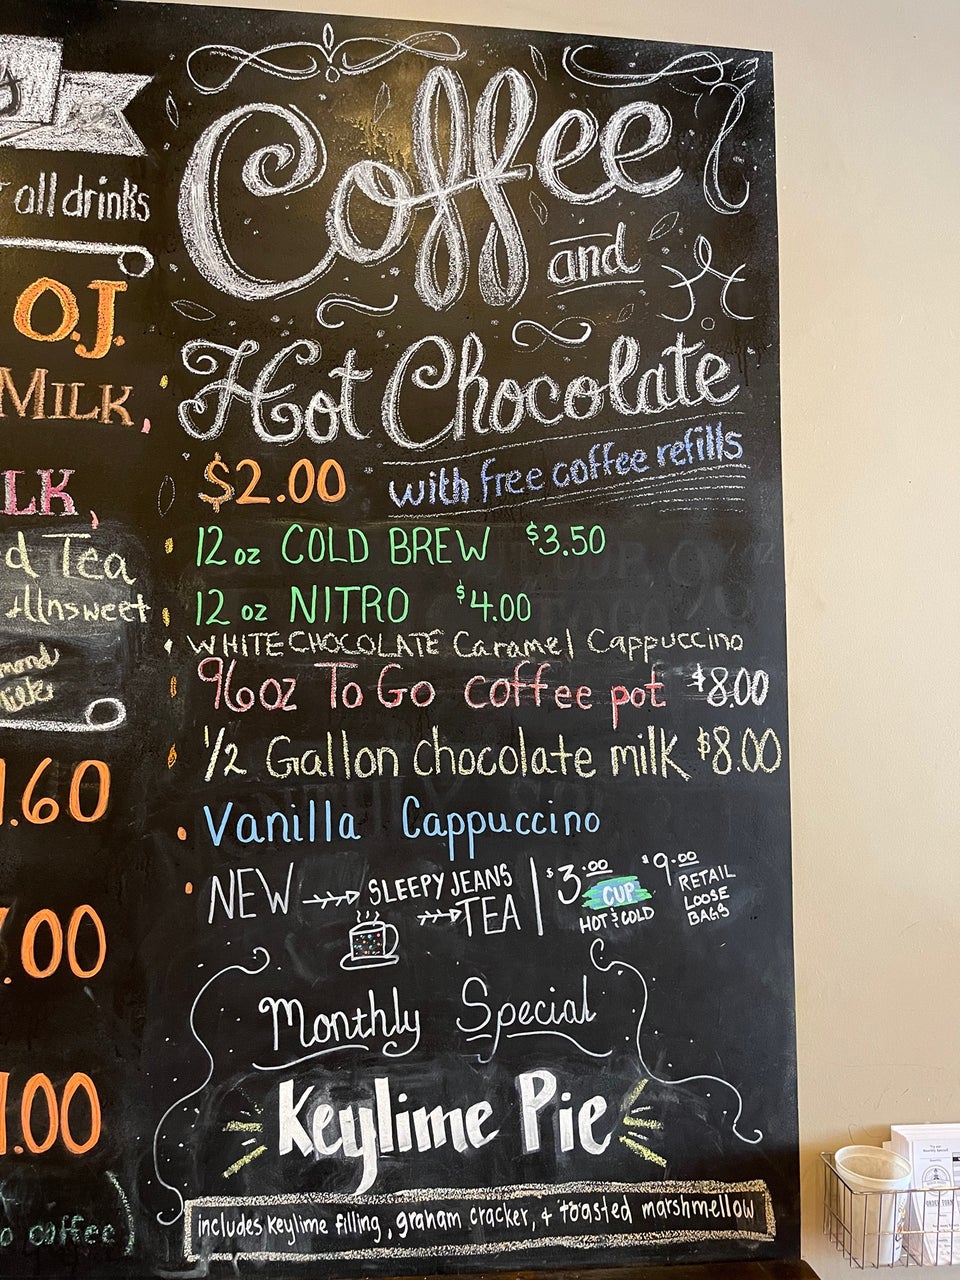 all drinks
O.J.
MILK,
LK,
d Tea
Unsweet
1.60
.00
.00
o coffee)
Coffee
and
Hot Chocolate
$2.00 with free coffee refills
12 oz COLD BREW $3.50
12 oz NITRO $4.00
WHITE CHOCOLATE Caramel Cappuccino
96oz To Go coffee pot $8.00
1/2 Gallon chocolate milk $8.00
Vanilla Cappuccino
NEW SLEEPY JEANS TEA
$3.00 CUP HOT & COLD
$9.00 RETAIL LOOSE BAGS
Monthly Special
Keylime Pie
includes keylime filling, graham cracker, + toasted marshmellow